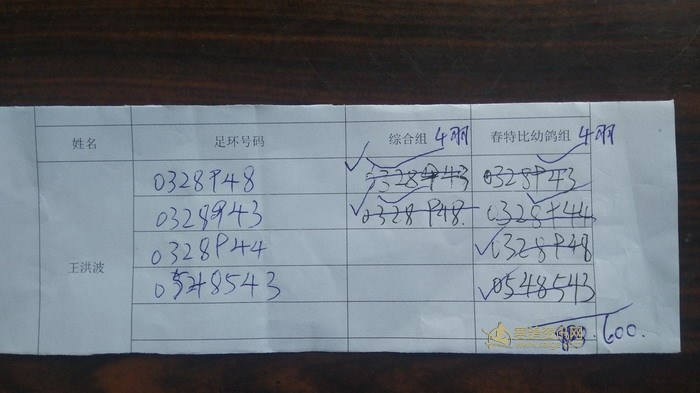 姓名 足环号码 综合组 4羽 春特比幼鸽组 4羽
王洪波
0328948 0328943 0328943
0328943 0328948. 0328944
0328944 0328948
0548543 0548543
600.